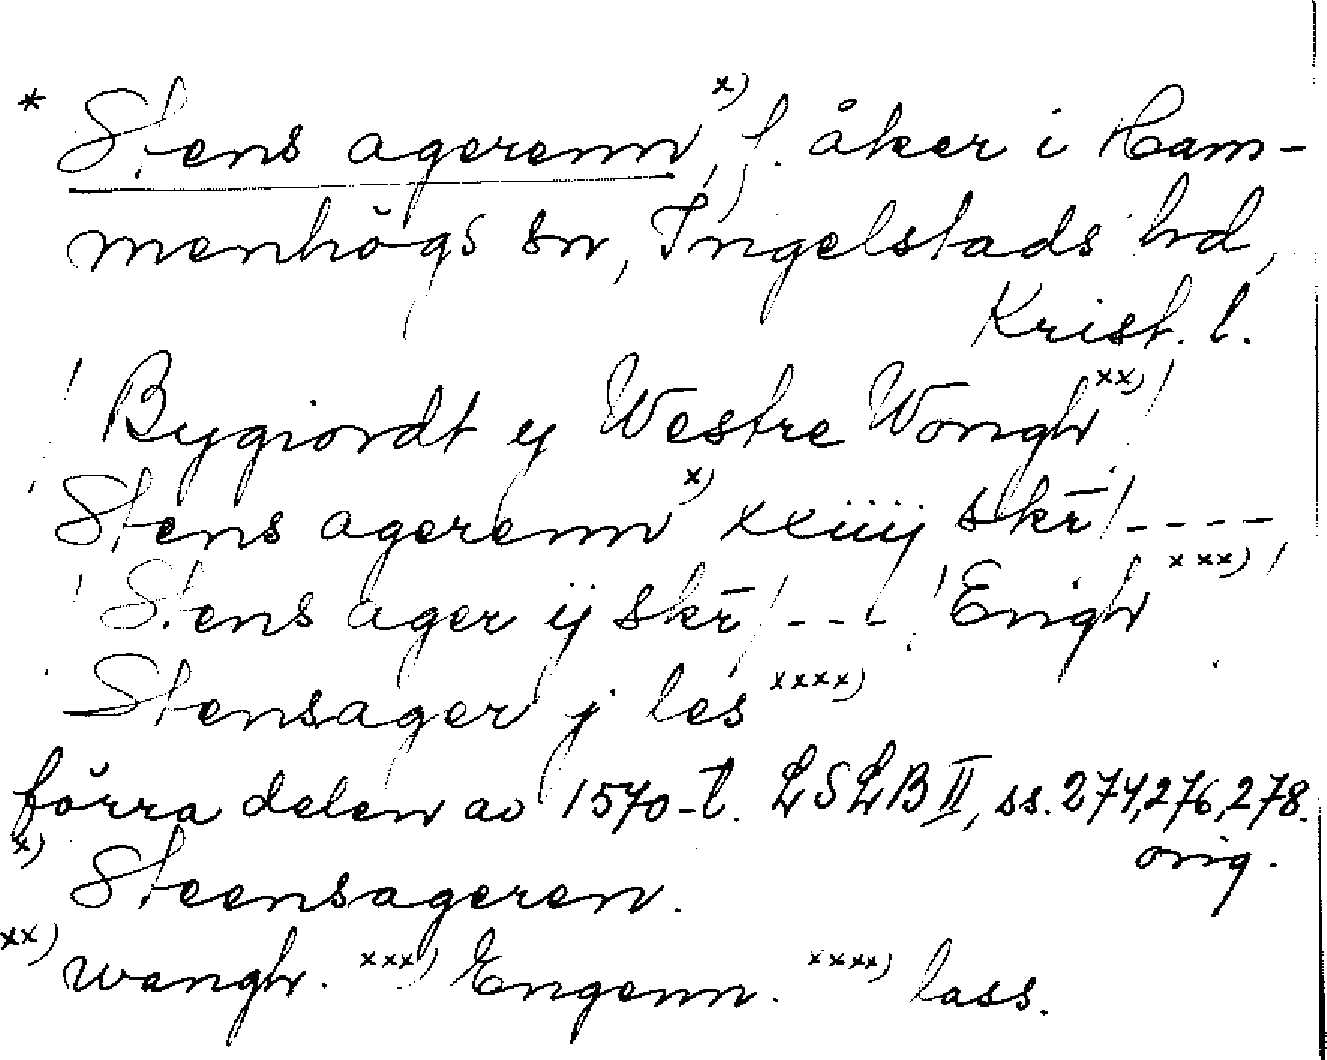 * Stens agerenn x), f. åker i Ham-
menhögs sn, Ingelstads hd,
Krist. l.
! Bygiordt y Westre Wongh xx) !
Stens agerenn x) xxiiij skr̄ ! ----
! Stens ager ij skr̄ ! --- ! Engh xxx) !
Stensager j les xxxx)
förra delen av 1570-t. LSLB II, ss. 274, 276, 278.
orig.
x) Steensageren.
xx) wangh. xxx) Engenn. xxxx) lass.